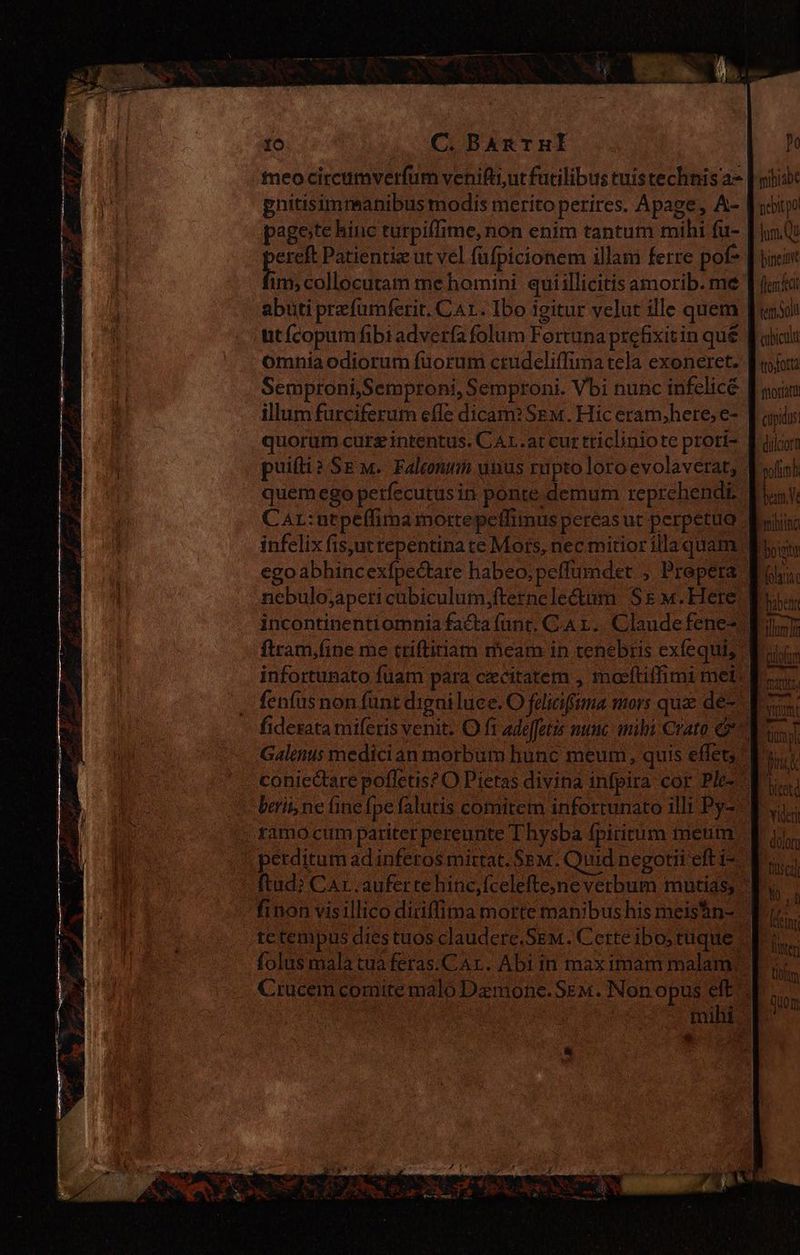 10 C. BARTHI
meo circumversum venisti, ut futilibus tuis technis a-
gnitis immanibus modis merito perires. Apage, A-
page, te hinc turpissime, non enim tantum mihi su-
perest Patientiæ ut vel suspicionem illam ferre pos-
sim, collocutam me homini qui illicitis amorib. me
abuti præsumserit. CAL. Ibo igitur velut ille quem
ut scopum sibi adversa solum Fortuna prefixit in quē
omnia odiorum suorum crudelissima tela exoneret.
Semproni, Semproni, Semproni. Vbi nunc infelicē
illum furciferum esse dicam? SEM. Hic eram, here, e-
quorum curæ intentus. CAL. at cur triclinio te prori-
puisti? SEM. Falconum unus rupto loro evolaverat,
quem ego persecutus in ponte demum reprehendi.
CAL: ut pessima morte pessimus pereas ut perpetuo
infelix sis, ut repentina te Mors, nec mitior illa quam
ego abhinc exspectare habeo, pessumdet, Prepera
nebulo, aperi cubiculum, sterne lectum SEM. Here
incontinenti omnia facta sunt. CAL. Claude fene-
stram, sine me tristitiam meam in tenebris exsequi,
infortunato suam para cæcitatem, mœstissimi mei
sensus non sunt digni luce. O felicissima mors quæ de-
siderata miseris venit. O si adessetis nunc mihi Crato &
Galenus medici an morbum hunc meum, quis esset,
coniectare possetis? O Pietas divina inspira cor Ple-
berii, ne sine spe salutis comitem infortunato illi Py-
ramo cum pariter pereunte Thysba spiritum meum
perditum ad inferos mittat. SEM. Quid negotii est i-
stud? CAL. aufer te hinc, sceleste, ne verbum mutias,
si non vis illico dirissima morte manibus his meis an-
te tempus dies tuos claudere. SEM. Certe ibo, tuque
solus mala tua feras. CAL. Abi in maximam malam
Crucem comite malo Dæmone. SEM. Non opus est
mihi